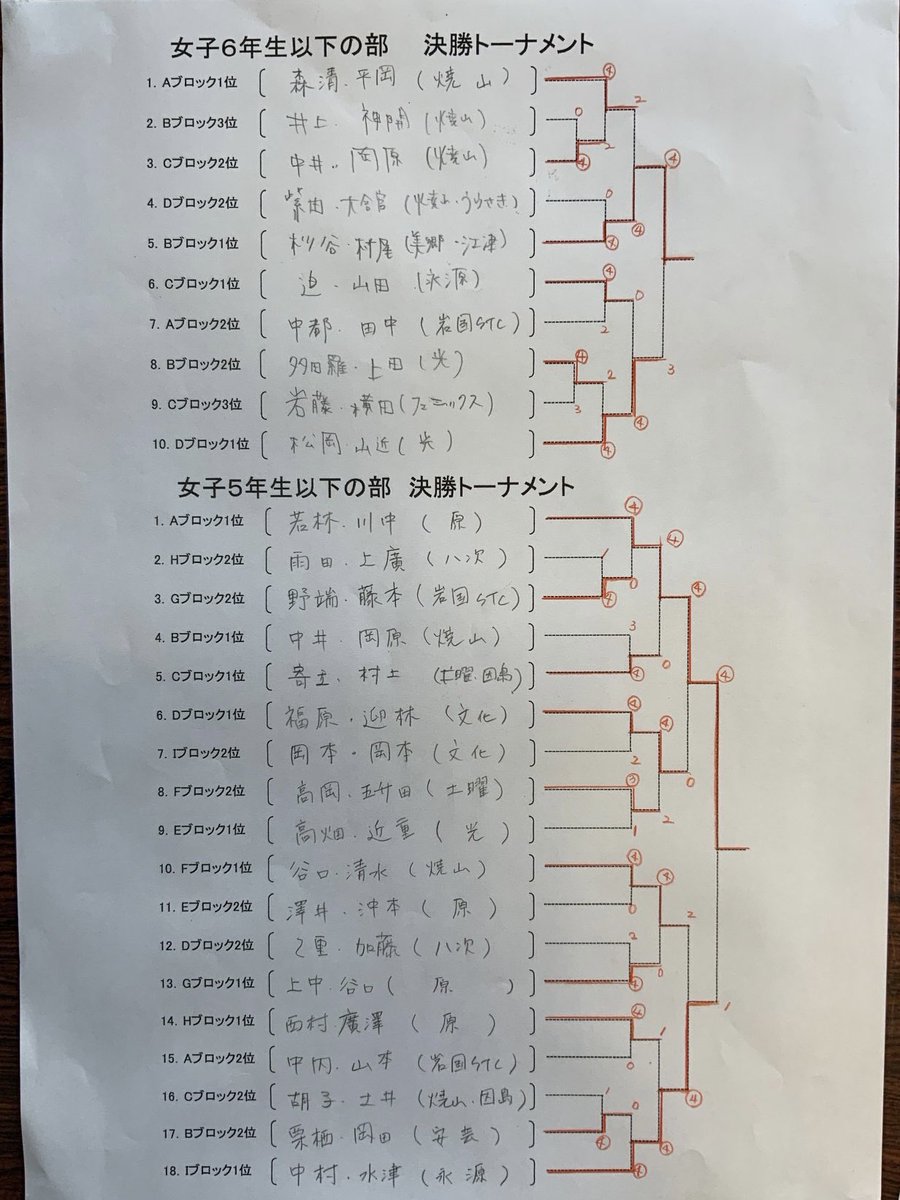 女子6年生以下の部 決勝トーナメント
1. Aブロック1位 〔 森清・平岡 (焼山) 〕 ④
2
2. Bブロック3位 〔 井上・神開 (焼山) 〕 0
2
3. Cブロック2位 〔 中井・岡原 (焼山) 〕 ④
④
4. Dブロック2位 〔 柴田・大倉 (焼山・うらやき) 〕 0
④
5. Bブロック1位 〔 松谷・村尾 (美郷・江津) 〕 ④
6. Cブロック1位 〔 迫・山田 (永源) 〕 ④
0
7. Aブロック2位 〔 中都・田中 (岩国STC) 〕 2
8. Bブロック2位 〔 多田羅・上田 (光) 〕 ④
2
3
9. Cブロック3位 〔 岩藤・横田 (フェニックス) 〕 3
④
10. Dブロック1位 〔 松岡・山近 (光) 〕 ④
女子5年生以下の部 決勝トーナメント
1. Aブロック1位 〔 若林・川中 (原) 〕 ④
④
2. Hブロック2位 〔 雨田・上廣 (八次) 〕 1
0
3. Gブロック2位 〔 野端・藤本 (岩国STC) 〕 ④
④
4. Bブロック1位 〔 中井・岡原 (焼山) 〕 3
0
5. Cブロック1位 〔 寄主・村上 (土曜・因島) 〕 ④
④
6. Dブロック1位 〔 福原・迎林 (文化) 〕 ④
④
7. Iブロック2位 〔 岡本・岡本 (文化) 〕 2
0
8. Fブロック2位 〔 高岡・五升田 (土曜) 〕 ③
2
9. Eブロック1位 〔 高畑・近重 (光) 〕 1
10. Fブロック1位 〔 谷口・清水 (焼山) 〕 ④
④
11. Eブロック2位 〔 澤井・沖本 (原) 〕 0
2
12. Dブロック2位 〔 乙重・加藤 (八次) 〕 2
0
13. Gブロック1位 〔 上中・谷口 (原) 〕 ④
1
14. Hブロック1位 〔 西村 廣澤 (原) 〕 ④
1
15. Aブロック2位 〔 中内・山本 (岩国STC) 〕 0
16. Cブロック2位 〔 胡子・土井 (焼山・因島) 〕 1
④
0
17. Bブロック2位 〔 栗栖・岡田 (安芸) 〕 ④
④
18. Iブロック1位 〔 中村・水津 (永源) 〕 ④